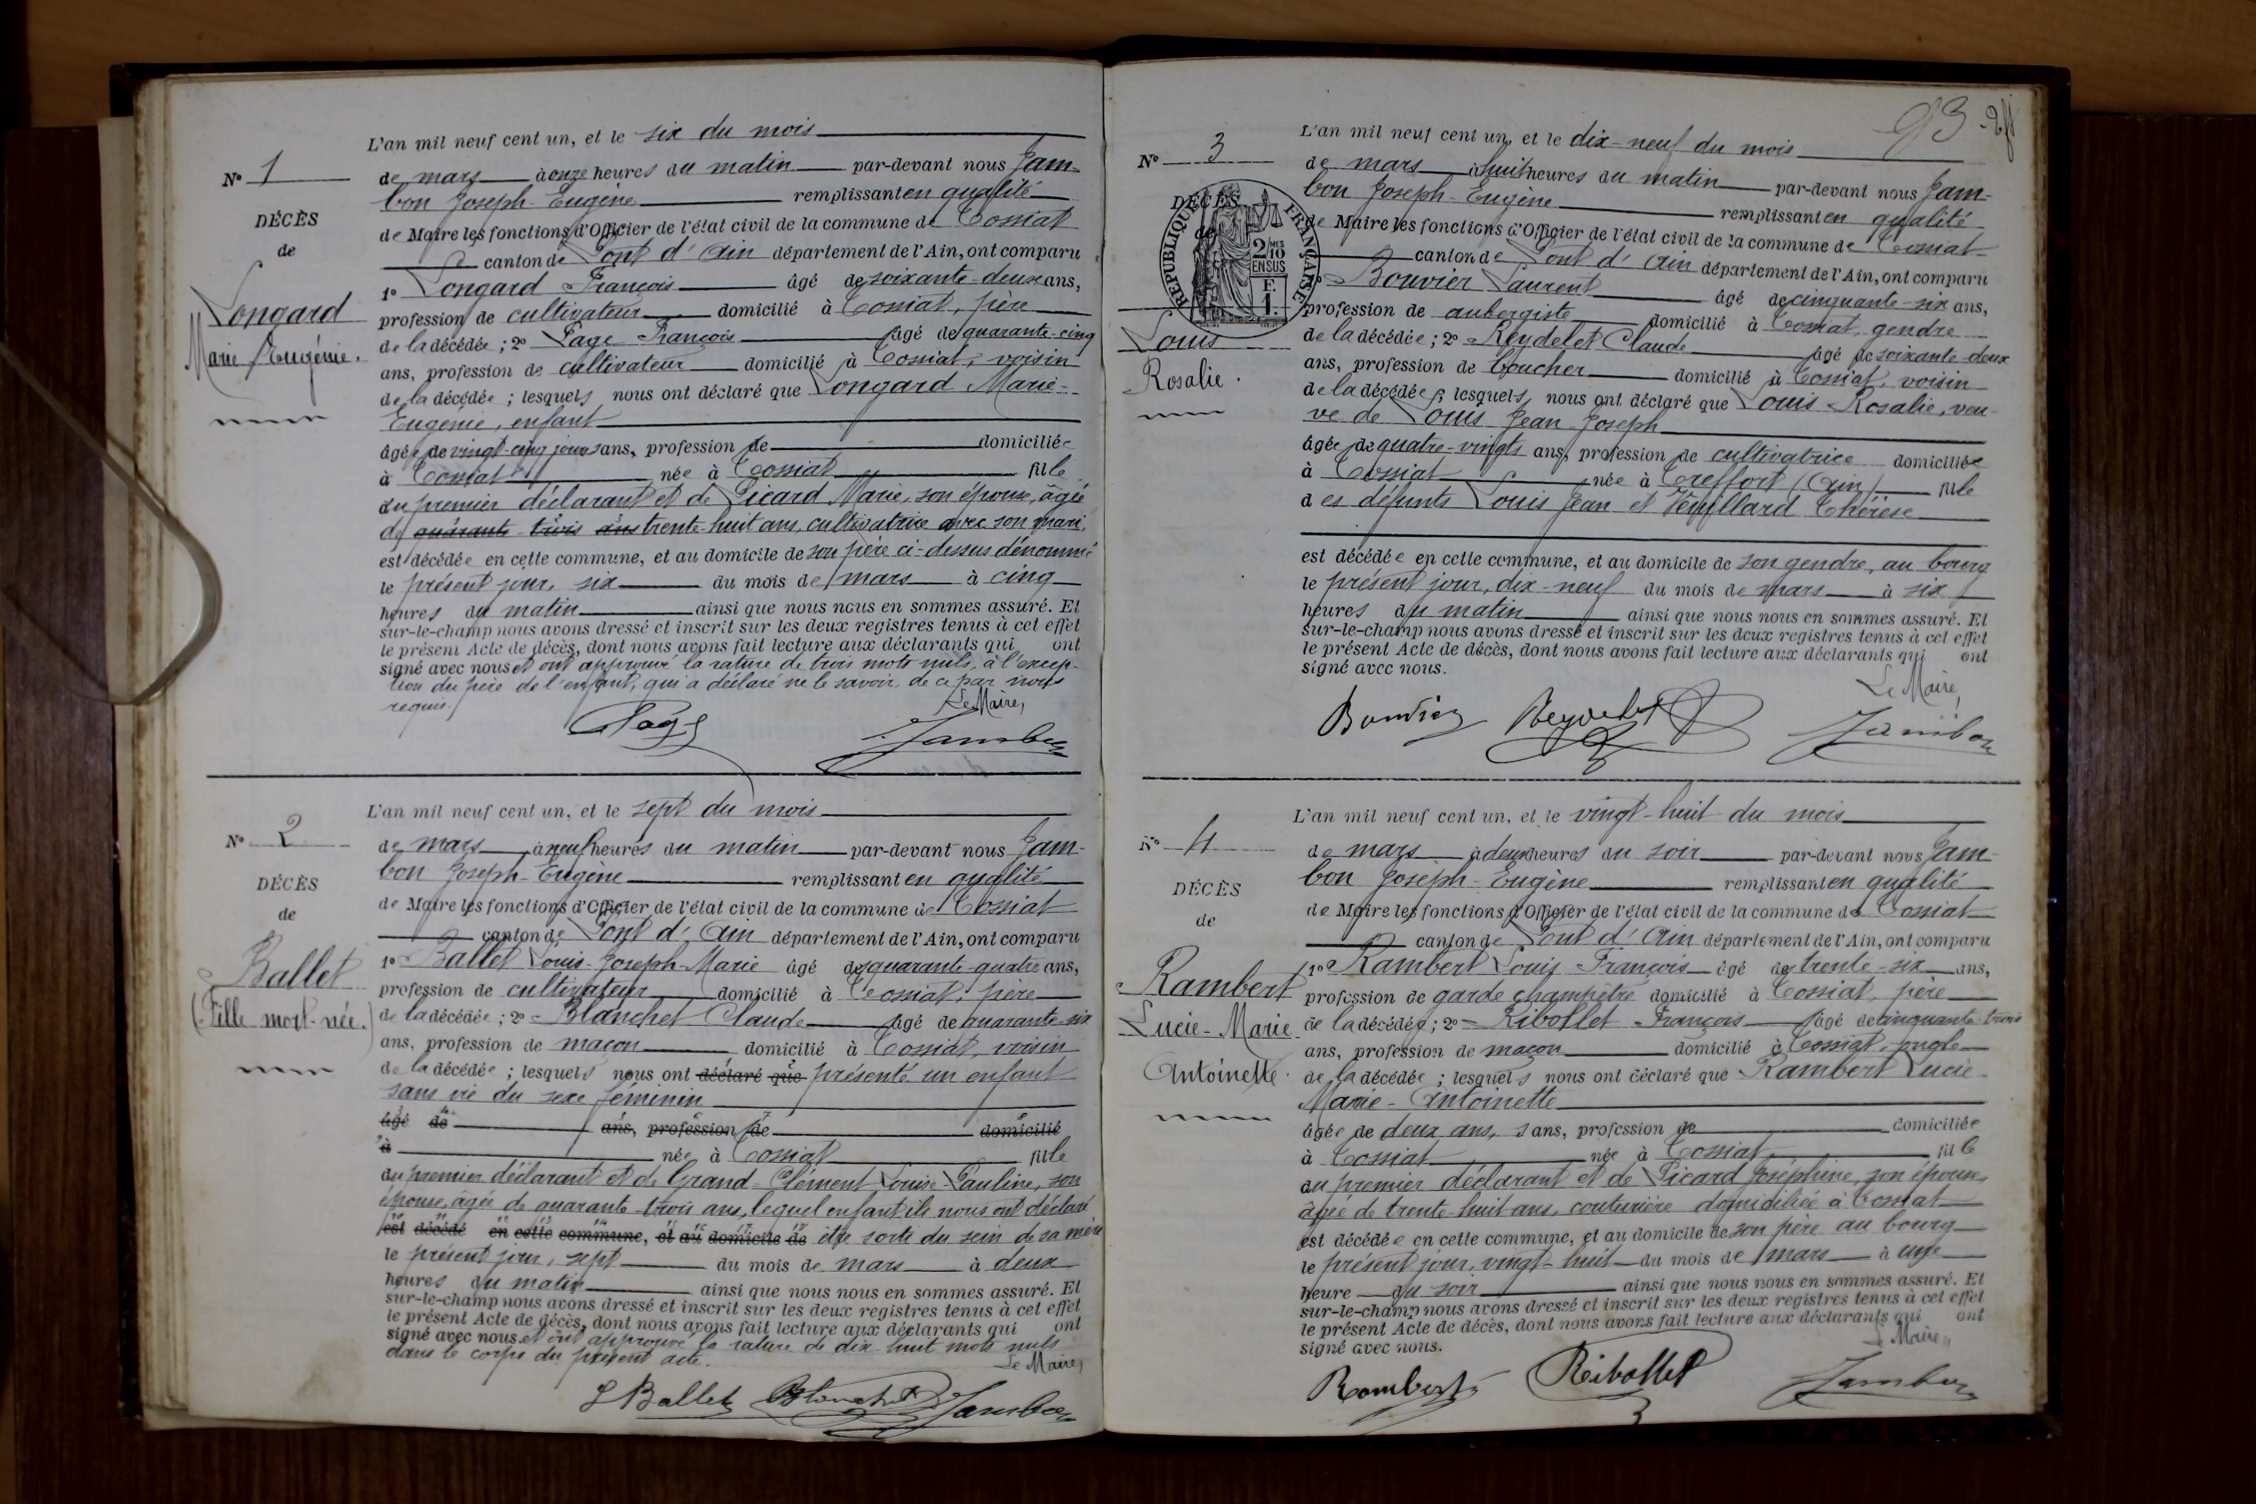 L'an mil neuf cent un, et le six du mois
N° 1
de mars à onze heures du matin par-devant nous Jam-
bon Joseph-Eugène remplissant en qualité
DÉCÈS
de Maire les fonctions d'Officier de l'état civil de la commune de Tossiat
de
canton de Pont d'Ain département de l'Ain, ont comparu
1° Longard François âgé de soixante-deux ans,
Longard
profession de cultivateur domicilié à Tossiat, père
Marie Eugénie.
de la décédée ; 2° Page François âgé de quarante-cinq
ans, profession de cultivateur domicilié à Tossiat, voisin
de la décédée ; lesquels nous ont déclaré que Longard Marie-
Eugénie, enfant
âgée de vingt-cinq jours ans, profession de domiciliée
à Tossiat née à Tossiat fille
du premier déclarant et de Picard Marie, son épouse, âgée
de quarante trois ans trente-huit ans, cultivatrice avec son mari,
est décédée en cette commune, et au domicile de son père ci-dessus dénommé
le présent jour, six du mois de mars à cinq
heures du matin ainsi que nous nous en sommes assuré. Et
sur-le-champ nous avons dressé et inscrit sur les deux registres tenus à cet effet
le présent Acte de décès, dont nous avons fait lecture aux déclarants qui ont
signé avec nous et ont approuvé la rature de trois mots nuls, à l'excep-
tion du père de l'enfant, qui a déclaré ne le savoir, de ce par nous
requis.
Le Maire,
Page
Jambon
L'an mil neuf cent un, et le sept du mois
N° 2
de mars à neuf heures du matin par-devant nous Jam-
bon Joseph-Eugène remplissant en qualité
DÉCÈS
de Maire les fonctions d'Officier de l'état civil de la commune de Tossiat
de
canton de Pont d'Ain département de l'Ain, ont comparu
Ballet
1° Ballet Louis-Joseph-Marie âgé de quarante-quatre ans,
profession de cultivateur domicilié à Tossiat, père
(Fille mort-née.)
de la décédée ; 2° Blanchet Claude âgé de quarante-six
ans, profession de maçon domicilié à Tossiat, voisin
de la décédée ; lesquels nous ont déclaré que présenté un enfant
sans vie du sexe féminin
âgé de ans, profession de domicilié
à née à Tossiat fille
du premier déclarant et de Grand-Clément Louise-Pauline, son
épouse, âgée de quarante-trois ans, lequel enfant ils nous ont déclaré
est décédé en cette commune, et au domicile de être sorti du sein de sa mère
le présent jour, sept du mois de mars à deux
heures du matin ainsi que nous nous en sommes assuré. Et
sur-le-champ nous avons dressé et inscrit sur les deux registres tenus à cet effet
le présent Acte de décès, dont nous avons fait lecture aux déclarants qui ont
signé avec nous et ont approuvé la rature de dix-huit mots nuls
dans le corps du présent acte.
Le Maire,
L Ballet Blanchet Jambon
93
L'an mil neuf cent un, et le dix-neuf du mois
N° 3
de mars à huit heures du matin par-devant nous Jam-
bon Joseph-Eugène remplissant en qualité
DÉCÈS
de Maire les fonctions d'Officier de l'état civil de la commune de Tossiat
de
RÉPUBLIQUE FRANÇAISE
2/10 MES
EN SUS
F.
1.
canton de Pont d'Ain département de l'Ain, ont comparu
1° Bouvier Laurent âgé de cinquante-six ans,
profession de aubergiste domicilié à Tossiat, gendre
Louis
de la décédée ; 2° Reydelet Claude âgé de soixante-deux
Rosalie.
ans, profession de boucher domicilié à Tossiat, voisin
de la décédée ; lesquels nous ont déclaré que Louis Rosalie, veu-
ve de Louis Jean-Joseph
âgée de quatre-vingts ans, profession de cultivatrice domiciliée
à Tossiat née à Treffort (Ain) fille
des défunts Louis Jean et Veuillard Thérèse
est décédée en cette commune, et au domicile de son gendre, au bourg
le présent jour, dix-neuf du mois de mars à six
heures du matin ainsi que nous nous en sommes assuré. Et
sur-le-champ nous avons dressé et inscrit sur les deux registres tenus à cet effet
le présent Acte de décès, dont nous avons fait lecture aux déclarants qui ont
signé avec nous.
Le Maire,
Bouvier Reydelet Jambon
L'an mil neuf cent un, et le vingt-huit du mois
N° 4
de mars à deux heures du soir par-devant nous Jam-
bon Joseph-Eugène remplissant en qualité
DÉCÈS
de Maire les fonctions d'Officier de l'état civil de la commune de Tossiat
de
canton de Pont d'Ain département de l'Ain, ont comparu
Rambert
1° Rambert Louis François âgé de trente-six ans,
profession de garde champêtre domicilié à Tossiat, père
Lucie-Marie
de la décédée ; 2° Ribollet François âgé de cinquante-trois
ans, profession de maçon domicilié à Tossiat, oncle
Antoinette.
de la décédée ; lesquels nous ont déclaré que Rambert Lucie-
Marie-Antoinette
âgée de deux ans, sans, profession de domiciliée
à Tossiat née à Tossiat fille
du premier déclarant et de Picard Joséphine, son épouse,
âgée de trente-huit ans, couturière domiciliée à Tossiat
est décédée en cette commune, et au domicile de son père au bourg
le présent jour, vingt-huit du mois de mars à une
heure du soir ainsi que nous nous en sommes assuré. Et
sur-le-champ nous avons dressé et inscrit sur les deux registres tenus à cet effet
le présent Acte de décès, dont nous avons fait lecture aux déclarants qui ont
signé avec nous.
Le Maire,
Rambert Ribollet Jambon